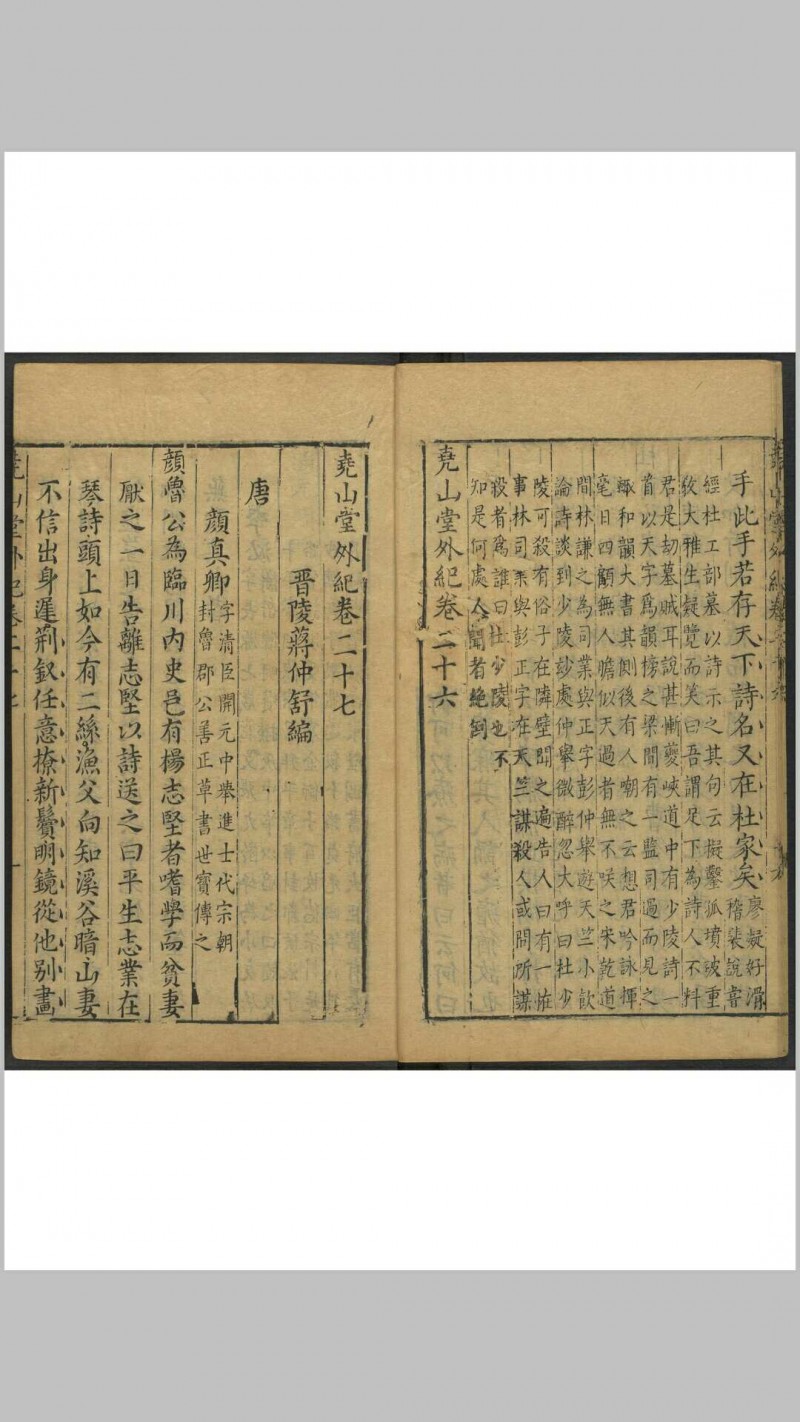 手此手若存天下詩名又在杜家矣廖凝好滑
稽裴說嘗
經杜工部墓以詩示之其句云擬鑿孤墳破重
教大雅生凝覽而笑曰吾謂足下為詩人不料
君是刼墓賊耳說甚慚夔峽道中有少陵詩一
首以天字爲韻榜之梁間有一監司過而見之
輒和韻大書其側後有人嘲之云想君吟詠揮
毫日四顧無人膽似天過者無不咲之宋乾道
間林謙之為司業與正字彭仲舉遊天竺小飲
論詩談到少陵妙處仲舉微醉忽大呼曰杜少
陵可殺有俗子在隣壁聞之遍告人曰有一恠
事林司業與彭正字在天竺謀殺人或問所謀
殺者爲誰曰杜少陵也不
知是何處人聞者絶倒
堯山堂外紀卷二十六
堯山堂外紀卷二十七
晋陵蔣仲舒編
唐
顔真卿字清臣開元中舉進士代宗朝
封魯郡公善正草書世寳傳之
顔魯公為臨川內史邑有楊志堅者嗜學而貧妻
厭之一日告離志堅以詩送之曰平生志業在
琴詩頭上如今有二絲漁父向知溪谷暗山妻
不信出身遲荆釵任意撩新鬢明鏡從他别畫
堯山堂外紀卷二十七
一